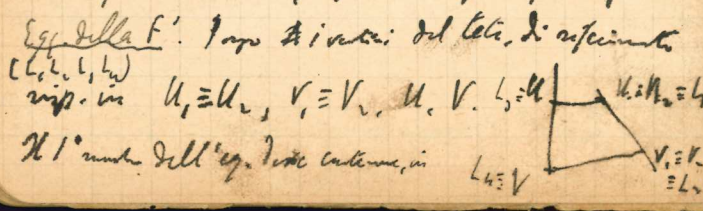 Eqz. della F'. Pongo i vertici del tetr. di riferimento
(L₁ L₂ L₃ L₄)
risp. in U₁≡U₂, V₁≡V₂, U, V. L₃≡U U₁≡U₂≡L
Il 1° membro dell'eq. deve contenere, in
L₄≡V V₁≡V₂
≡L₂